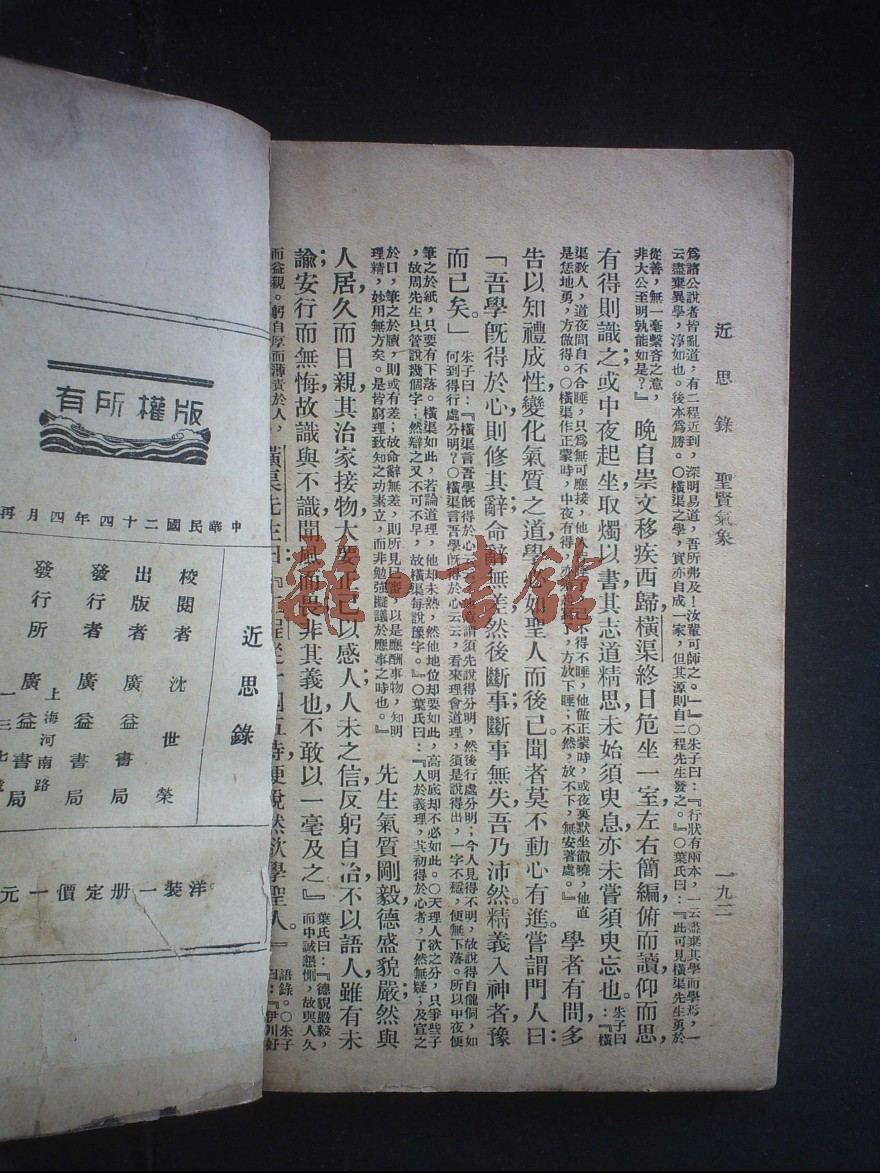 近思錄 聖賢氣象 一九二
爲諸公說者皆亂道，有二程近到，深明易道，吾所弗及！汝輩可師之。」』○朱子曰：『行狀有兩本，一云盡棄其學而學焉，一
云盡棄異學，淳如也。後本爲勝。○橫渠之學，實亦自成一家，但其源則自二程先生發之。』○葉氏曰：『此可見橫渠先生勇於
從善，無一毫繫吝之意，
非大公至明孰能如是？』晚自崇文移疾西歸橫渠，終日危坐一室，左右簡編，俯而讀，仰而思，
有得則識之；或中夜起坐，取燭以書；其志道精思，未始須臾息，亦未嘗須臾忘也。朱子曰：『橫
渠敎人，道夜間自不合睡，只爲無可應接，他人皆睡了，己不得不睡，他做正蒙時，或夜裏默坐徹曉，他直
是恁地勇，方做得。○橫渠作正蒙時，中夜有得，亦須起寫了，方放下睡；不然，放不下，無安著處。』學者有問，多
告以知禮成性，變化氣質之道，學必如聖人而後已，聞者莫不動心有進。嘗謂門人曰：
「吾學旣得於心，則修其辭命；辭無差，然後斷事；斷事無失，吾乃沛然。精義入神者，豫
而已矣。」朱子曰：『橫渠言吾學旣得於心云云，
何到得行處分明？○橫渠言吾學旣得於心云云，看來理會道理，須是說得出，一字不穩，便無下落。所以中夜便
筆之於紙，只要有下落。橫渠如此，若論道理，他却未熟，然他地位却要如此，高明底却不必如此。○天理人欲之分，只爭些子
，故周先生只管說幾個字；然辯之又不可不早，故橫渠每說豫字。』○葉氏曰：『人於義理，其初得於心者，了然無疑；及宣之
於口，筆之於牘，則或有差；故命辭無差，則所見已審，以是應酬事物，知明
理精，妙用無方矣。是皆窮理致知之功素立，而非勉强擬議於應事之時也。』先生氣質剛毅，德盛貌嚴；然與
人居，久而日親；其治家接物，大要正己以感人，人未之信，反躬自治，不以語人；雖有未
諭，安行而無悔；故識與不識，聞風而畏，非其義也，不敢以一毫及之。』葉氏曰：『德貌嚴毅，
而中誠懇惻，故與人久
而益親。躬自厚而薄責於人，
橫渠先生曰：『二程從十四五時，便脫然欲學聖人。』語錄。○朱子
曰：『伊川好
版權所有
中華民國二十四年四月再
近思錄
校閱者 沈世榮
出版者 廣益書局
發行者 廣益書局
發行所 廣益書局
上海河南路
一三七號
洋裝一册定價一元
書館